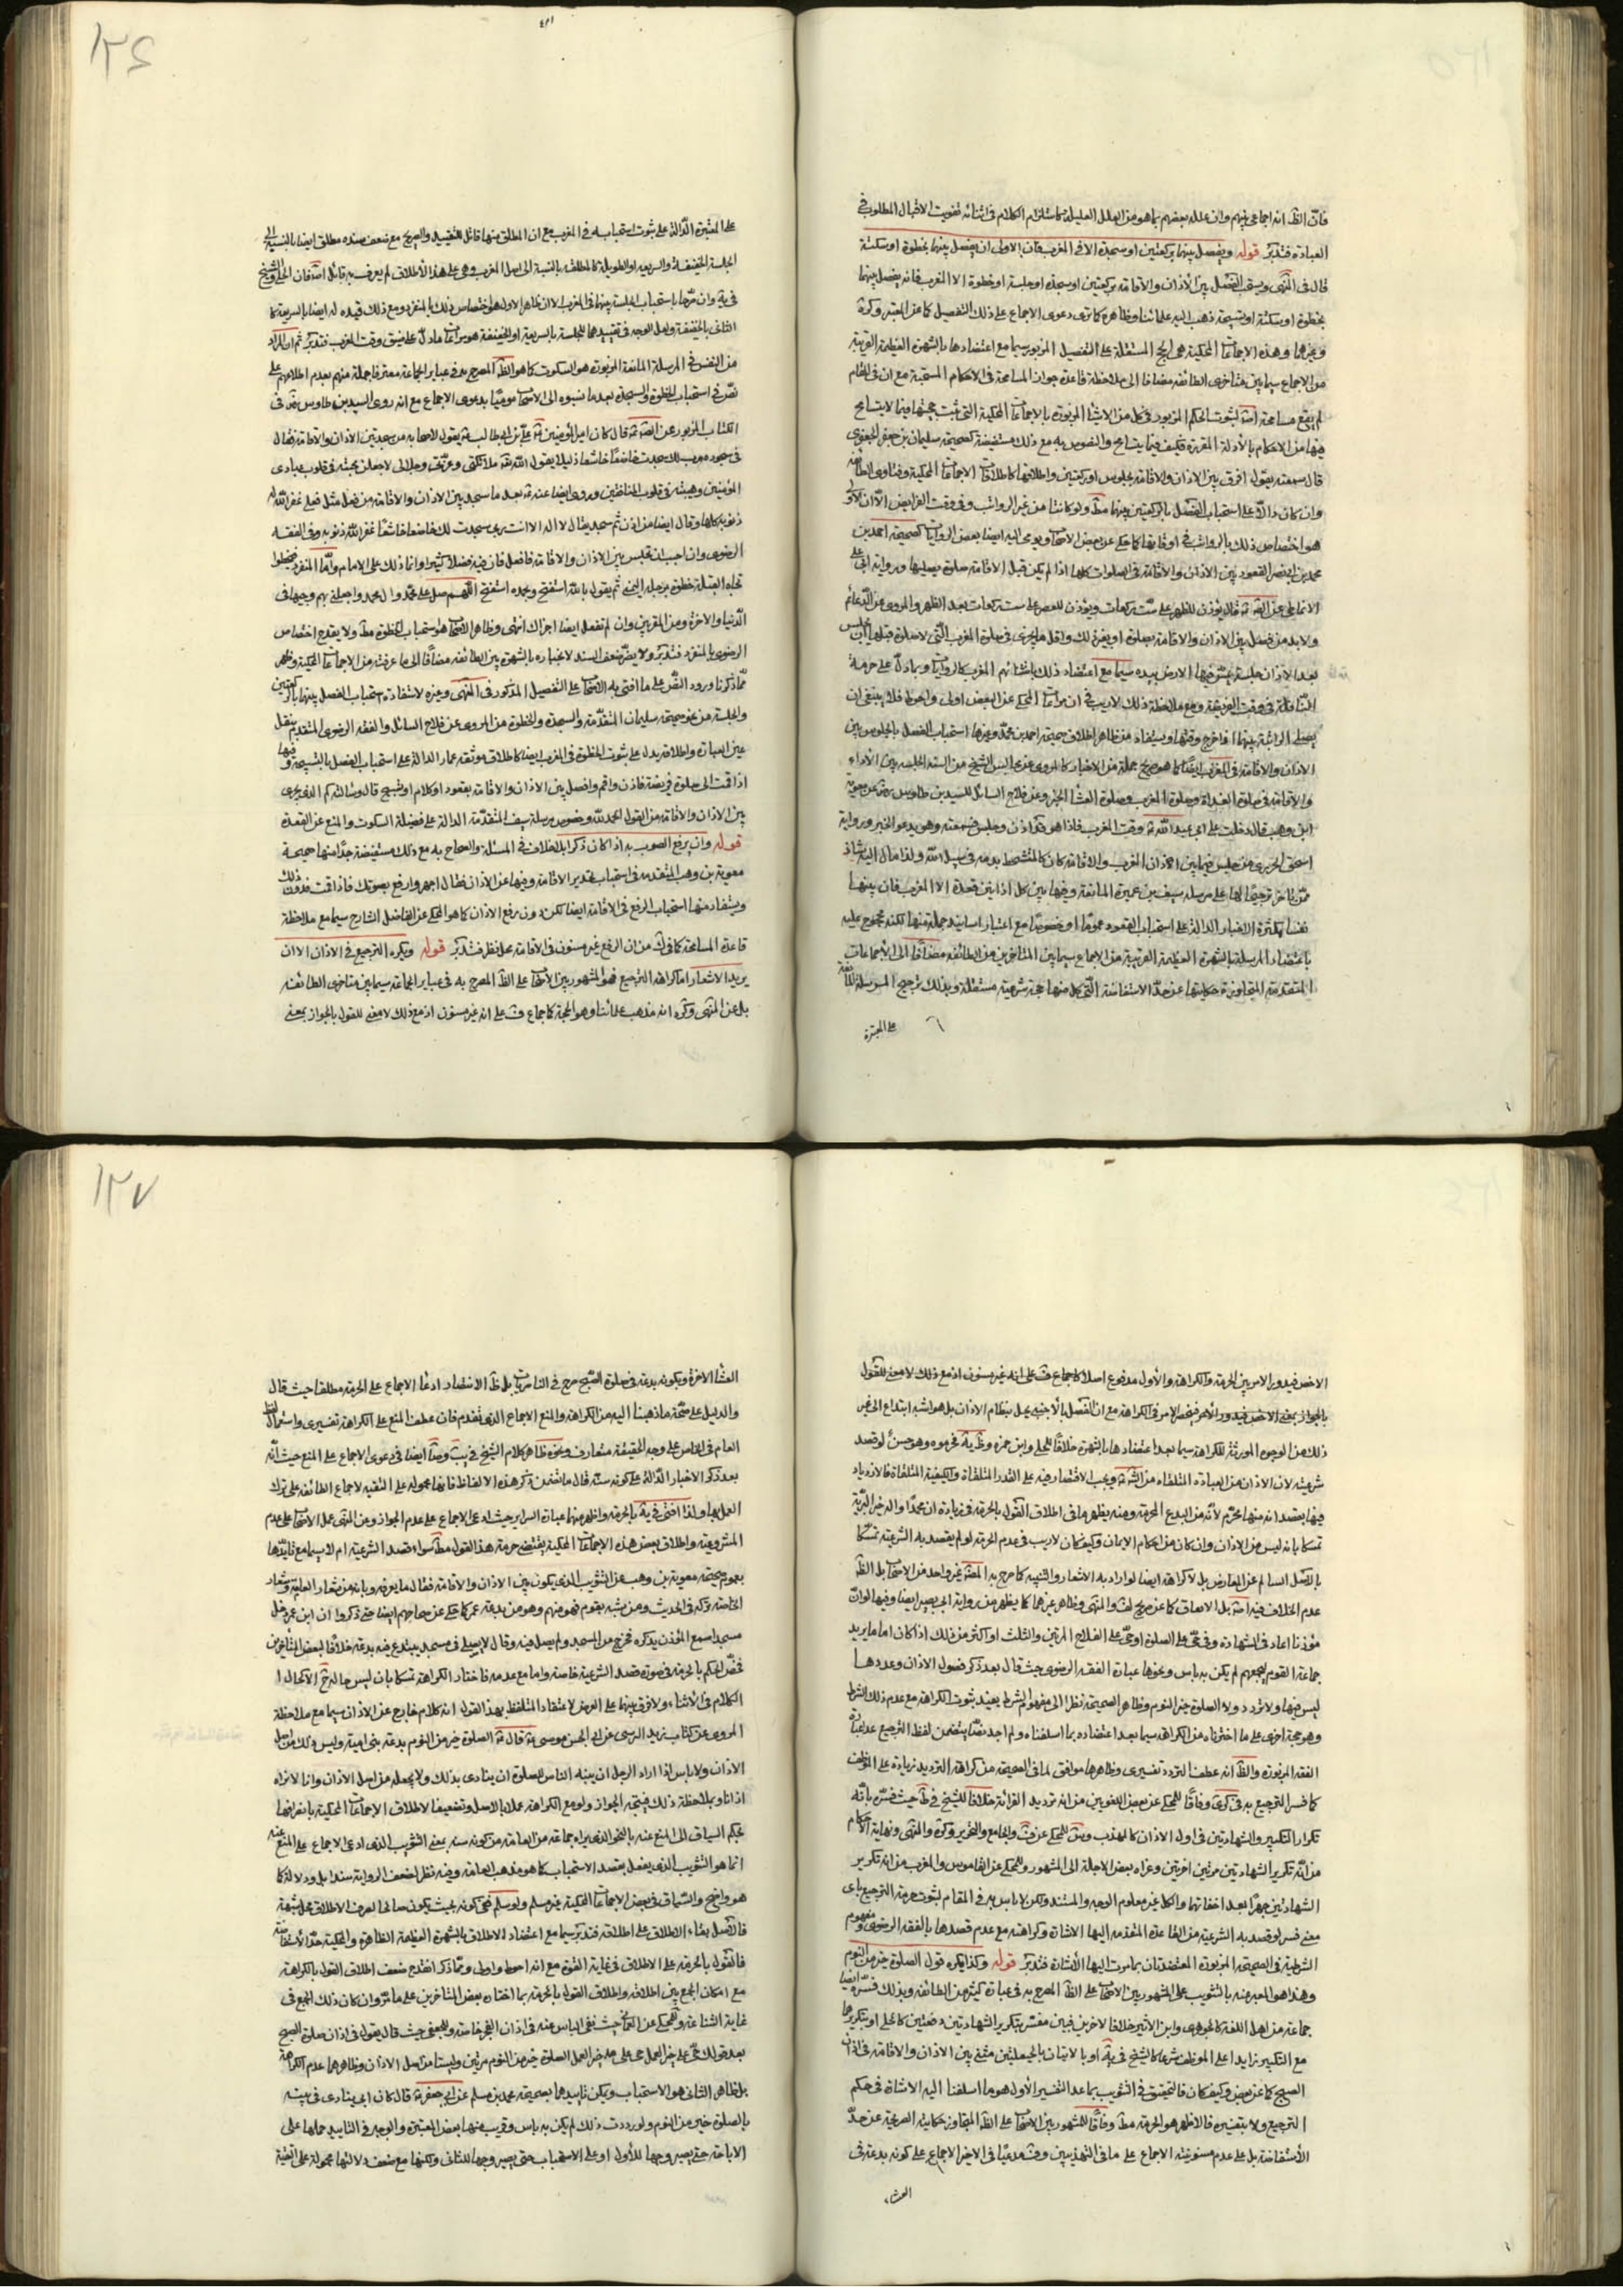 فانّ الظّ انه اجماعى بينهم وان علله بعضهم بما هو من العلل العليلة كاستلزام الكلام فى اثنائه تفويت الاقبال المطلوب فى
العبادة فتدبّر قوله ويفصل بينهما بركعتين او سجدة الا فى المغرب فان الاولى ان يفصل بينهما بخطوة او سكتة
قال فى المنتهى ويستحب الفصل بين الأذان والاقامة بركعتين او سجدة او جلسة او خطوة الا المغرب فانه يفصل بينهما
بخطوة او سكتة او تسبيحة ذهب اليه علمائنا وظاهره كما ترى دعوى الاجماع على ذلك التفصيل كما عن المعتبر وكرة
وغيرهما وهذه الاجماعات المحكية هى الحجّ المستقلة على التفصيل المزبور سيما مع اعتضادها بالشهرة العظيمة القريبة
من الاجماع سيما بين متأخرى الطائفه مضافا الى ملاحظة قاعدة جواز المسامحة فى الاحكام المستحبة مع ان فى المقام
قال سمعته يقول افرق بين الاذان والاقامة بجلوس او ركعتين واطلاقها كاطلاقات الاجماعات المحكية وفتاوى الطائفه
وان كان دالّا على استحباب الفصل بالركعتين بينهما مطّ ولو كانتا من غير الرواتب وفى وقت الفرايض الّا ان الأولى
هو اختصاص ذلك بالرواتب فى اوقاتها كما حكى عن بعض الاصحاب ويومى اليه ايضا بعض الروايات كصحيحة احمد بن
محمد بن ابى نصر القعود بين الاذان والاقامة فى الصلوات كلها اذا لم يكن قبل الاقامة صلوة يصليها ورواية ابى على
قال يؤذن للظهر على ستّ ركعات ويؤذن للعصر على ست ركعات بعد الظهر والمروى عن الدعائم
ولا بد من فصل بين الاذان والاقامة بصلوة او بغير ذلك واقل ما يجزى فى صلوة المغرب التّى لا صلوة قبلها ان يجلس
بعد الاذان جلسة يمسّ فيها الارض بيده سيما مع اعتضاد ذلك
النافلة فى وقت الفريضة ومع ملاحظة ذلك لا ريب فى ان مراعات المحكى عن البعض اولى واحوط فلا ينبغى ان
يصلى الراتبة بينهما اذا خرج وقتها ويستفاد من ظاهر اطلاق صحيحة احمد بن محمّد وغيرها استحباب الفصل بالجلوس بين
الاذان والاقامة فى المغرب ايضًا كما هو صريح جملة من الاخبار كالمروى عن مجالس الشيخ من السنة الجلسة بين الأذان
والاقامة فى صلوة الغداة وصلوة المغرب وصلوة العشا الخبر وعن فلاح السائل للسيد بن طاوس بسنده عن معوية
ابن وهب قال دخلت على ابى عبد الله ع وقت المغرب فاذا هو قد اذن وجلس فسمعته وهو يدعو الخبر ورواية
اسحق الجريرى من جلس فيما بين اذان المغرب والاقامة كان كالمتشحط بدمه فى سبيل الله ولذا مال اليه شاذ
ممّن تأخر ترجيحًا لها على مرسلة سيف بن عميرة المانعة وفيها بين كل اذانين قعدة الا المغرب فان بينهما
نفسا بكثرة الاخبار الدالة على استحباب القعود عمومًا او خصوصًا مع اعتبار اسانيد جملة منها لكنه محجوج عليه
باعتضاد المرسلة بالشهرة العظيمة القريبة من الاجماع سيما بين المتأخرين من الطائفه مضافًا الى الأجماعات
المتقدمة المتجاوزة حكايتها عن حدّ الاستفاضة الّتى كل منها حجة شرعية مستقلة وبذلك ترجيح المرسلة المانعة
على المعتبرة
١٢٦
على المعتبرة الدّالة على ثبوت استحبابه فى المغرب مع ان المطلق منها قابل للتقييد والصريح مع ضعف سنده مطلق ايضا بالنسبة الى
الجلسة الخفيفة والسريعه او الطويلة كالمطلقه بالنسبة الى اصل المغرب وهى على هذا الأطلاق لم يعرف به قائل
الثانى بالخفيفة ولعل الوجه فى تقييدهما للجلسة بالسريعة او الخفيفة هو مراعات ما دلّ على ضيق وقت المغرب فتدبّر ثم ان المراد
من النفس فى المرسلة المانعة المزبورة هو السكوت كما هو الظّ المصرح به فى عباير الجماعة معترفا جملة منهم بعدم اطلاعهم على
نصّ فى استحباب الخطوة والسجدة بعد ما نسبوه الى الاصحاب مومئًا بدعوى الاجماع مع انه روى السيد بن طاوس فى
الكتاب المزبور عن الصّ ع قال كان امير المؤمنين ع علىّ بن ابيطالب ع يقول لاصحابه من سجد بين الاذان والاقامة فقال
فى سجوده رب لك سجدت خاضعًا خاشعا ذليلا يقول اللّه تعّ ملائكتى وعزّتى وجلالى لاجعلن محبته فى قلوب عبادى
المؤمنين وهيبته فى قلوب المنافقين
ذنوبه كلها وقال ايضا من اذن ثم سجد فقال لا اله الا انت ربى سجدت لك خاضعا خاشعًا غفر اللّه ذنوبه وفى الفقه
الرضوى وان احببت ان تجلس بين الاذان والاقامة فافعل فان فيه فضلا كثيرا وانما ذلك على الامام وامّا المنفرد فيخطوا
تجاه القبلة خطوة برجله اليمنى ثم يقول باللّه استفتح وبمحمد استنجح اللّهم صل على محمّد وال محمد واجعلنى بهم وجيها فى
الدّنيا والاخرة ومن المقربين وان لم تفعل ايضا اجزاك انتهى وظاهر الاصحاب هو استحباب الخطوة مطّ ولا يقدح اختصاص
الرضوى بالمنفرد فتدبّر ولا يضرّ ضعف السند لاعتباره بالشهرة بين الطائفه مضافًا الى ما عرفته من الاجماعات المحكية وظهر
ممّا ذكرنا ورود النصّ على ما افتى به الاصحاب على التفصيل المذكور فى المنتهى وغيره لاستفادة استحباب الفصل بينهما بالركعتين
والجلسة من نحو صحيحة سليمان المتقدّمة والسجدة والخطوة من المروى عن فلاح السائل والفقه الرضوى المتقدم نقل
عين العبارة واطلاقه يدل على ثبوت الخطوة فى المغرب ايضا كاطلاق موثقه عمار الدالة على استحباب الفصل بالتسبيحة وفيها
اذا قمت الى صلوة فريضة فاذن واقم وافصل بين الاذان والاقامة بقعود او كلام او تسبيح قال وسألته كم الذى يجزى
بين الاذان والاقامة من القول الحمد للّه وخصوص مرسلة سيف المتقدّمة الدالة على فضيلة السكوت والمنع عن القعدة
قوله وان يرفع الصوت به اذا كان ذكرا بلا خلاف فى المسئلة والصحاح به مع ذلك مستفيضة جدّا منها صحيحة
معوية بن وهب المتقدمه فى استحباب تحدير الاقامة وفيها عن الاذان فقال اجهر وارفع به صوتك فاذا اقمت فدون ذلك
ويستفاد منها استحباب الرفع فى الاقامة ايضا لكن دون رفع الاذان كما هو المحكى عن الفاضل الشارح سيما مع ملاحظة
قاعدة المسامحة كما فى من ان الرفع غير مسنون فى الاقامة محل نظر فتدبّر قوله ويكره الترجيع فى الاذان الا ان
يريد الاشعار اما كراهة الترجيع فهو المشهور بين الاصحاب على الظّ المصرح به فى عباير الجماعة سيما بين متاخرى الطائفه
بل عن المنتهى وكره انه مذهب علمائنا وهو الحجة كاجماع على انه غير مسنون اذ مع ذلك لا معنى للقول بالجواز بمعنى
الاخص فيدور الامر بين الحرمة والكراهة والأول مدفوع اصلا كاجماع على انه غير مسنون اذ مع ذلك لا معنى للقول
بالجواز بمعنى الاخص فيدور الأمر فينحصر الامر فى الكراهة مع ان الفصل بالأجنبى يخل بنظام الاذان بل هو اشبه ابتداع الى غير
ذلك من الوجوه المورثة للكراهة سيما بعد اعتضادها بالشهرة خلافًا للحلى وابن حمزه فحرموه وهو حسن لو قصد
شرعيته لان الاذان من العبادة المتلقاه من الشرع ويجب الاقتصار فيه على القدر المتلقاة والكيفية المتلقاة فالازدياد
فيها بقصد انه منها محرّم لأنّه من البدع المحرمة ومنه يظهر ما فى اطلاق القول بالحرمة فى زيادة ان محمدًا واله خير البرّية
تمسكا بانه ليس من الاذان وان كان من احكام الايمان وكيف كان لا ريب فى عدم الحرمة لو لم يقصد به الشرعية تمسّكا
بالاصل السالم عن المعارض بل لا كراهة ايضا لو اراد به الاشعار والتنبيه كما صرح به غير واحد من الاصحاب بل الظّ
عدم الخلاف فيه بل الاتفاق كما عن صريح والمنتهى وظاهر غيرهما كما يظهر من رواية ابى بصير ايضا وفيها لو انّ
مؤذنا اعاد فى الشهادة وفى حىّ على الصلوة او حىّ على الفلاح المرتين والثلث او اكثر من ذلك اذا كان اماما يريد
جماعة القوم ليجمعهم لم يكن به باس ونحوها عبارة الفقه الرضوى حيث قال بعد ذكر فصول الاذان وعددها
ليس فيها ولا تردد ولا الصلوة خير من النوم وظاهر الصحيحة نظرًا الى مفهوم الشرط يفيد ثبوت الكراهة مع عدم ذلك الشرط
وهو حجة اخرى على ما اخترناه من الكراهة سيما بعد اعتضاده بما اسلفناه ولم اجد نصًّا يتضمن لفظ الترجيع عدا عبارة
الفقه المزبورة والظّ انه عطف التردد تفسيرى وظاهرها موافق لما فى الصحيحة من كراهة الترديد زيادة على الموظف
كما فسر الترجيع به فى كرى وفاقًا للمحكى عن بعض اللغويين من انه ترديد القرائة خلافًا للشيخ فى ط حيث فسّره بأنّه
تكرار التكبير والشهادتين فى اول الاذان كالمهذب والجامع والتحرير وكره والمنتهى ونهاية الاحكام
من انّه تكرير الشهادتين مرتين اخرتين وعزاه بعض الاجلة الى المشهور وللمحكى عن القاموس والمغرب من انه تكرير
الشهادتين جهرًا بعد اخفاتهما والكل غير معلوم الوجه والمستند ولكن لا باس به فى المقام لثبوت حرمة الترجيع باى
معنى فسر لو قصد به الشرعية من القاعدة المتقدمه اليها الاشارة وكراهته مع عدم قصدها بالفقه الرضوى ومفهوم
الشرطية فى الصحيحة المزبورة المعتضدتان بما مرت اليها الأشارة فتدبّر قوله وكذا يكره قول الصلوة خير من النوم
وهذا هو المعبر عنه بالتثويب على المشهور بين الاصحاب على الظّ المصرح به فى عبارة كثير من الطائفه وبذلك فسّره ايضا
جماعة من اهل اللغة كالجوهرى وابن الأثير خلافا لاخرين فبين مفسّر بتكرير الشهادتين دفعتين كالحلى او بتكريرها
مع التكبير زايدا على الموظف شرعا كالشيخ فى يه او بالاتيان بالحيعلتين مثنى بين الاذان والاقامة فى اذان
الصبح كما عن بعض وكيف كان فالتحقيق فى التثويب بما عدا التفسير الأول هو ما اسلفنا اليه الاشارة فى حكم
الترجيع ولا بتفسيره فالاظهر هو الحرمة مطّ وفاقًا للمشهور بين الاصحاب على الظّ المتجاوزة حكايته الصريحة عن حدّ
الأستفاضة بل على عدم مسنونيته الاجماع على ما فى التهذيبين مدعيًا فى الاخير الاجماع على كونه بدعة فى
العشاء
١٢٧
العشا الاخرة وبكونه بدعة فى صلوة الصّبح صرح فى الناصريات بل ظّ الانتصار ادعا الاجماع على الحرمة مطلقا حيث قال
والدليل على صحّة ما ذهبنا اليه من الكراهة والمنع الاجماع الذى تقدم فان عطف المنع على الكراهة تفسيرى واستعمال لفظ
العام فى الخاص على وجه الحقيقة متعارف ونحوه ظاهر كلام الشيخ ايضا فى دعوى الاجماع على المنع حيث انّه
بعد ذكر الاخبار الدّالة على كونه سنّه قال ما تضمن ذكر هذه الالفاظ فانها محمولة على التقيه لاجماع الطائفه على ترك
العمل بها ولذا افتى فى يه بالحرمة واظهر منها عبارة السراير حيث ادعى الاجماع على عدم الجواز وعن المنتهى عمل الاصحاب على عدم
المشروعية واطلاق بعض هذه الاجماعات المحكية يقتضى حرمة هذا القول مطّ سواء قصد الشرعية ام لا سيما مع تايّدها
بعموم صحيحة معوية بن وهب عن التثويب الذى يكون بين الاذان والاقامة فقال ما نعرفه وبانه من شعار العامة وشعار
الخاصّة تركه فى الحديث ومن تشبه بقوم فهو منهم وهو من بدعة عمر كما حكى عن صحاحهم ايضا حتى ذكروا ان ابن عمر دخل
مسجدا سمع المؤذن يذكره فخرج من المسجد ولم يصل فيه وقال لا يصلى فى مسجد يبتدع فيه بدعة خلافًا لبعض المتأخرين
فخصّ الحكم بالحرمة فى صورة قصد الشرعية خاصة واما مع عدمه فاختار الكراهة تمسكا بان ليس حاله ح الا كحال
الكلام فى الأثناء ولا فرق بينهما على الفرض لاعتقاد المتلفظ بهذا القول انه كلام خارج عن الاذان سيما مع ملاحظة
المروى عن كتاب زيد النرسى عن ابى الحسن موسى ع قال الصلوة خير من النوم بدعة بنى امية وليس ذلك من اصل
الاذان ولا باس اذا اراد الرجل ان ينبه الناس للصلوة ان ينادى بذلك ولا يجعله من اصل الاذان وانا لا نراه
اذانا وبملاحظة ذلك فيتجه الجواز ولو مع الكراهة عملا بالاصل وتضعيفا لاطلاق الإجماعات المحكية بانصرافها
بحكم السياق الى المنع عنه بالنحو الذى يراه جماعة من العامة من كونه سنه بمعنى التثويب الذى ادعى الاجماع على المنع عنه
انما هو التثويب الذى يفعل بقصد الاستحباب كما هو مذهب العامة وفيه نظر لضعف الرواية سندا بل ودلالة كما
هو واضح والسياق فى بعض الاجماعات المحكية غير مسلم ولو سلم ففى كونه بحيث يكون صالحا لصرف الاطلاق محل شبهة
فالاصل بقاء الاطلاق على اطلاقه فتدبّر سيما مع اعتضاد الاطلاق بالشهرة العظيمة الظاهرة والمحكية حدّ الأستفاضة
فالقول بالحرمة على الاطلاق فى غاية القوة مع انه احوط واولى وممّا ذكر انقدح ضعف اطلاق القول بالكراهة
مع امكان الجمع بين اطلاقه واطلاق القول بالحرمة بما اختاره بعض المتاخرين على ما مرّ وان كان ذلك الجمع فى
غاية الشناعة وللمحكى عن حيث نفى الباس عنه فى اذان الفجر خاصة وللجعفى حيث قال يقول فى اذان صلوة الصبح
بعد قولك حىّ على خير العمل حى على خير العمل الصلوة خير من النوم مرتين وليستا من اصل الاذان وظاهرهما عدم الكراهة
بل ظاهر الثانى هو الاستحباب ويمكن تاييدهما بصحيحة محمد بن مسلم عن ابى جعفر ع قال كان ابى ينادى فى بيته
بالصلوة خير من النوم ولو رددت ذلك لم يكن به باس وقريب منها بعض المعتبرة والوجه فى التاييد حملها على
الاباحة حتى يصير وجها للأول او على الاستحباب حتى يصير وجها للثانى ولكنها مع ضعف دلالتها محمولة على التقية